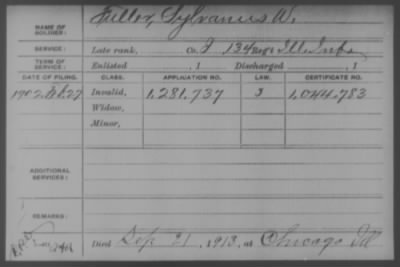 NAME OF SOLDIER: Fuller, Sylvanus W.
SERVICE: Late rank, Co. I 134 Regt Ill. Inf.
TERM OF SERVICE: Enlisted , 1 Discharged , 1
DATE OF FILING. CLASS. APPLICATION NO. LAW. CERTIFICATE NO.
1902 27 Invalid, 1,281,737 3 1,044,783
Widow,
Minor,
ADDITIONAL SERVICES:
REMARKS:
Died Sep 21, 1913, at Chicago Ill